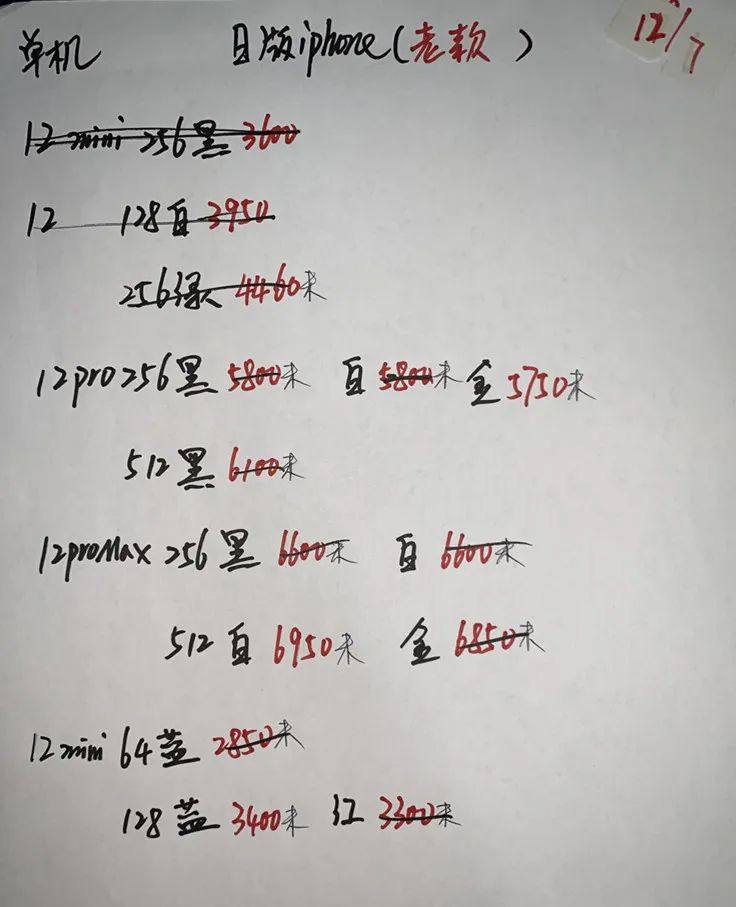 单机 日版iphone(老款) 12/7
12 mini 256黑 3600
12 128白 3950
256绿 4460未
12pro 256黑 5800未 白 5800未 金 5750未
512黑 6100未
12proMax 256黑 6600未 白 6600未
512白 6950未 金 6850未
12mini 64蓝 2850未
128蓝 3400未 红 3300未